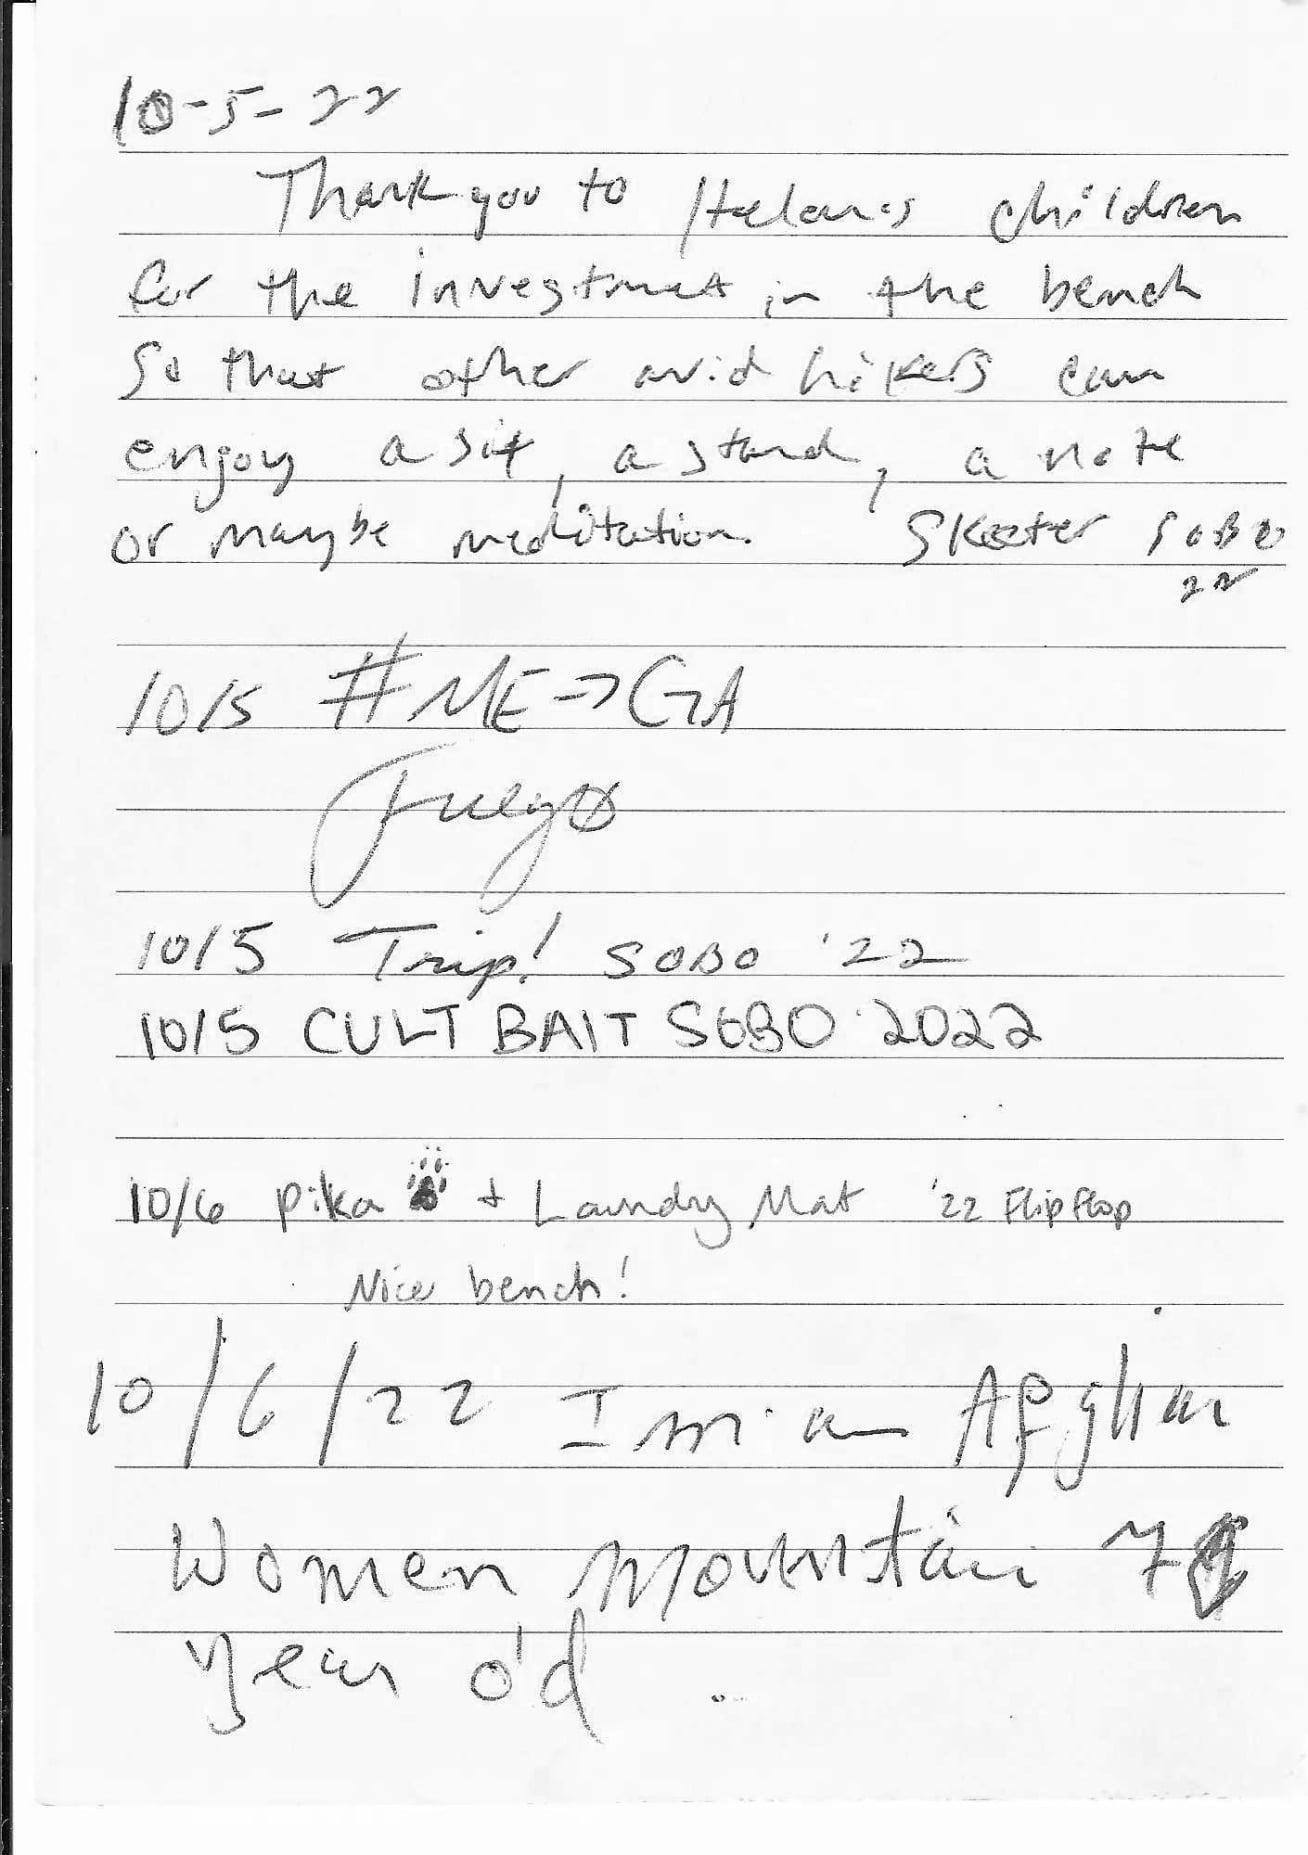 10-5-22
Thank you to Helen's children
for the investment in the bench
so that other avid hikers can
enjoy a sit, a stand, a note
or maybe meditation. Skeeter SOBO
22
10/5 #ME→GA
Fuego
10/5 Trip! SOBO '22
10/5 CULT BAIT SOBO 2022
10/6 pika + Laundry Mat '22 FlipFlop
Nice bench!
10/6/22 I m a Afghan
Women Mountain
year old